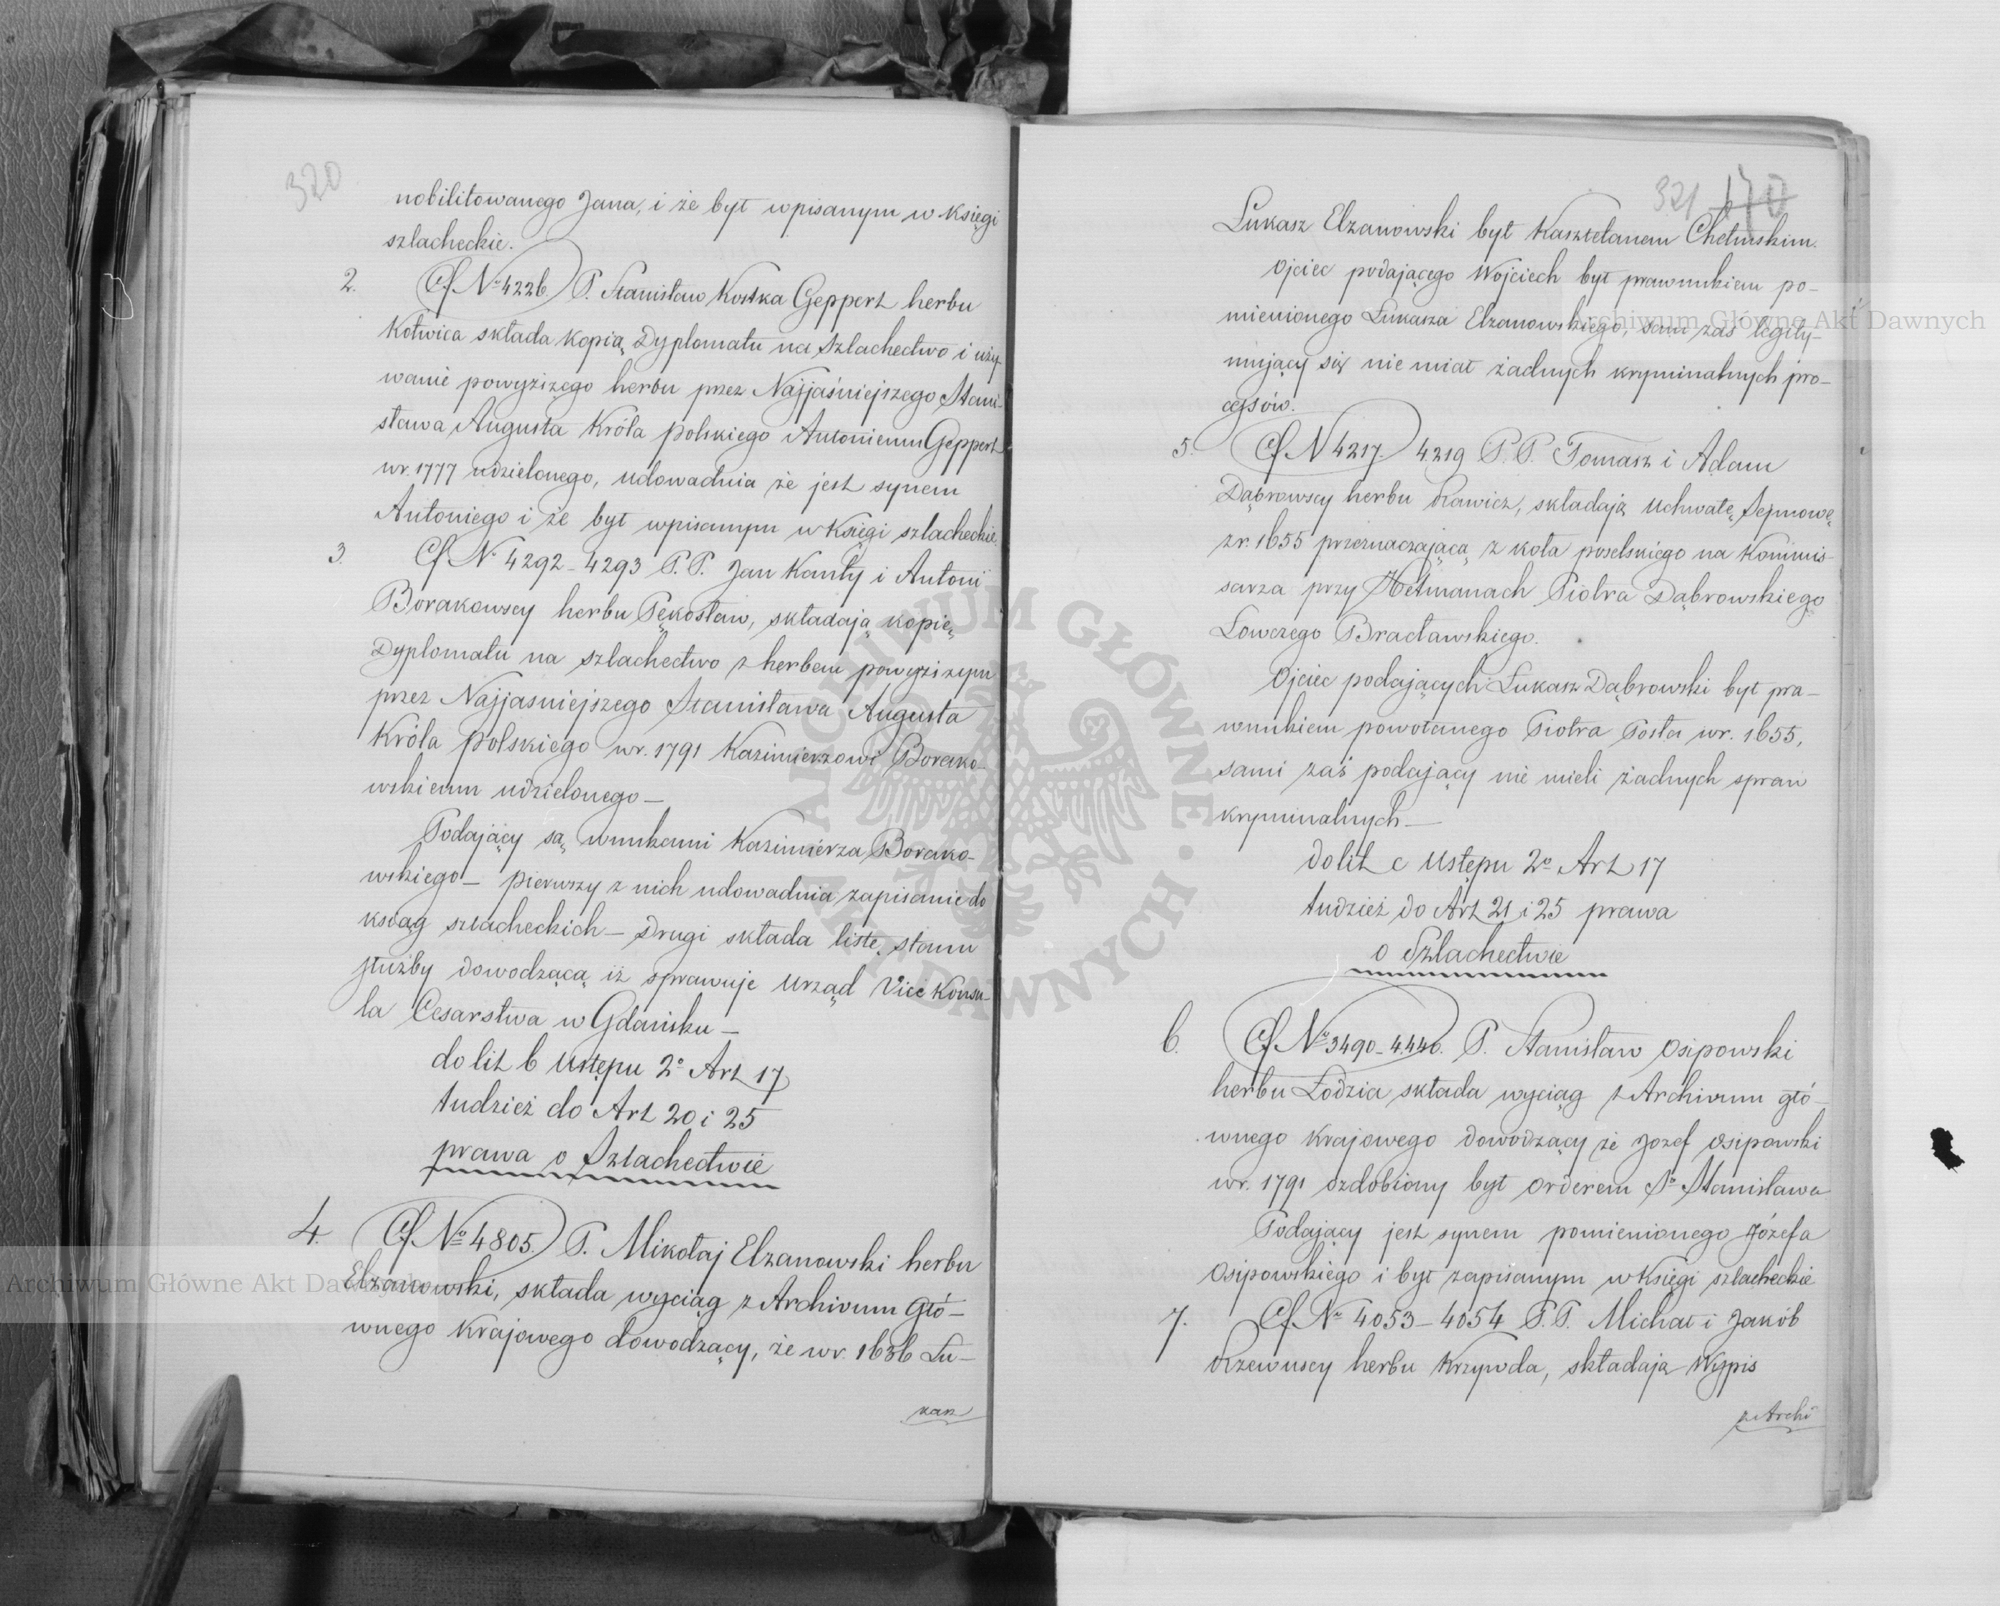 320
nobilitowanego Jana, i że był wpisanym w Księgi
szlacheckie.
2. Cf. No 4226. P. Stanisław Kostka Geppert herbu
Kotwica składa kopią Dyplomatu na Szlachectwo i uży-
wanie powyższego herbu przez Najjaśniejszego Stani-
sława Augusta Króla polskiego Antoniemu Geppert
w r. 1777 udzielonego, udowadnia że jest synem
Antoniego i że był wpisanym w Księgi szlacheckie.
3. Cf N. 4292 - 4293 P.P. Jan Kanty i Antoni
Borakowscy herbu Pękosław, składają kopię
Dyplomatu na szlachectwo z herbem powyższym
przez Najjasniejszego Stanisława Augusta
Króla polskiego w r. 1791 Kazimierzowi Borako-
wskiemu udzielonego —
Podający są wnukami Kazimierza Borako-
wskiego — pierwszy z nich udowadnia zapisanie do
ksiąg szlacheckich — Drugi składa listę stanu
służby dowodzącą iż sprawuje urząd Vice Konsu-
la Cesarstwa w Gdańsku —
do lit b Ustępu 2o Art 17
tudzież do Art 20 i 25
prawa o Szlachectwie
4. Cf. No 4805. P. Mikołaj Elzanowski herbu
Elzanowski, składa wyciąg z Archivum Głó-
wnego Krajowego dowodzący, że w r. 1636 Łu-
kasz
321 170
Łukasz Elzanowski był Kasztelanem Chełmskim.
Ojciec podającego Wojciech był prawnukiem po-
mienionego Łukasza Elzanowskiego, sam zaś legity-
mujący się nie miał żadnych kryminalnych pro-
cessów.
5. Cf N 4217. 4219 P.P. Tomasz i Adam
Dąbrowscy herbu Rawicz, składają Uchwałę Sejmową
z r. 1655 przeznaczającą z koła poselskiego na Kommis-
sarza przy Hetmanach Piotra Dąbrowskiego
Łowczego Bracławskiego.
Ojciec podających Łukasz Dąbrowski był pra-
wnukiem powołanego Piotra Posła w r. 1655,
sami zaś podający nie mieli żadnych spraw
kryminalnych —
do lit c Ustępu 2o Art 17
tudzież do Art 21 i 25 prawa
o Szlachectwie
6. Cf No 3490 - 4446. P. Stanisław Osipowski
herbu Łodzia składa wyciąg z Archivum głó-
wnego Krajowego dowodzący że Jozef Osipowski
w r. 1791 ozdobiony był orderem So Stanisława
Podający jest synem pomienionego Józefa
Osipowskiego i był zapisanym w Księgi szlacheckie
7. Cf. No 4053 - 4054 P.P. Michał i Jakób
Rzewuscy herbu Krzywda, składają Wypis
z Archi
Archiwum Główne Akt Dawnych
Archiwum Główne Akt Dawnych
ARCHIWUM GŁÓWNE AKT DAWNYCH